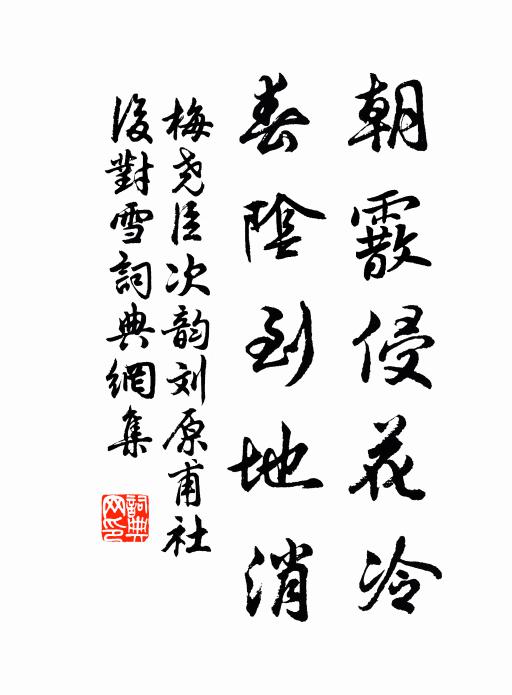 朝霰侵花冷
春陰到地消
梅尧臣次韵刘原甫社
後對雪詞典網集
詞典
网印